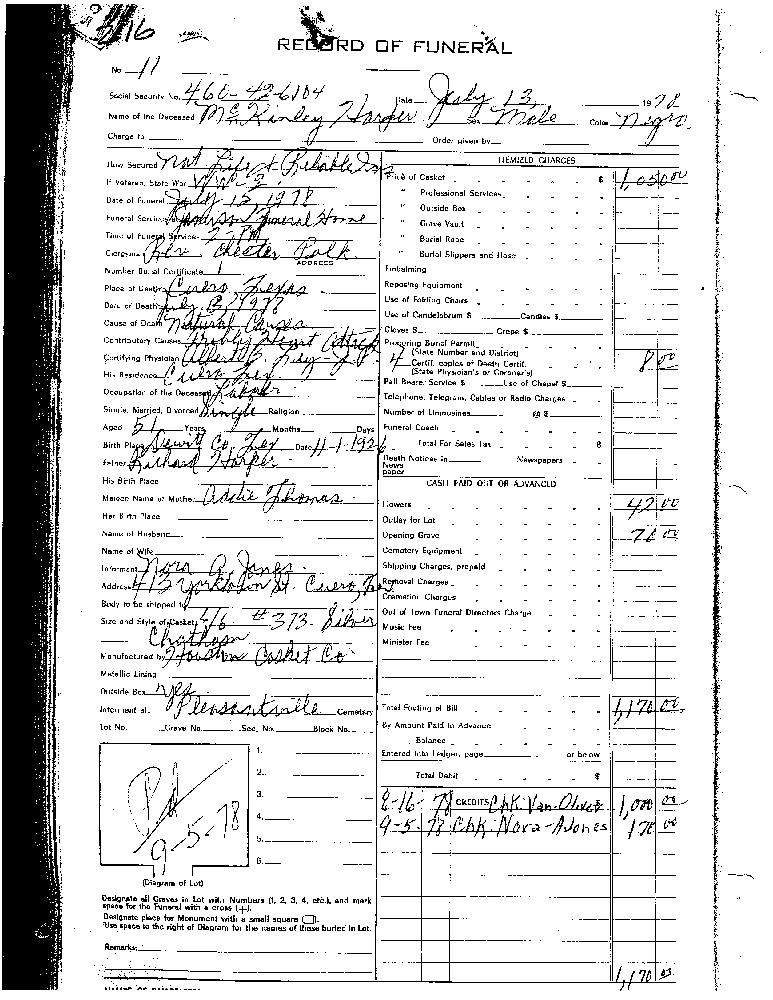 16
RECORD OF FUNERAL
No. 11
Social Security No. 460-42-6104 Date July 13 1978
Name of the Deceased McKinley Harper Sex Male Color Negro
Charge to Order given by
How Secured Nat Life & Reliable Ins
If Veteran, State War WW 2
Date of Funeral July 15 1978
Funeral Services Funeral Home
Time of Funeral Service 2 PM
Clergyman Rev. Chester Polk
ADDRESS
Number Burial Certificate
Place of Death Cuero, Texas
Date of Death July 1978
Cause of Death Natural Causes
Contributory Causes Probly Heart Attack
Certifying Physician Albert J.P.
His Residence Cuero Tex
Occupation of the Deceased Laborer
Single, Married, Divorced Single Religion
Aged 51 Years Months Days
Birth Place Dewitt Co, Tex Date 11-1-1926
Father Richard Harper
His Birth Place
Maiden Name of Mother Addie Thomas
Her Birth Place
Name of Husband
Name of Wife
Informant Nora A Jones
Address 413 Yorktown St. Cuero, Tex
Body to be shipped to
Size and Style of Casket 4/6 #373 - Silver
Chatham
Manufactured by Houston Casket Co
Metallic Lining
Outside Box Yes
Interment at Pleasantville Cemetery
Lot No. Grave No. Sec. No. Block No.
1.
2.
3.
4.
5.
6.
Pd
9-5-78
(Diagram of Lot)
Designate all Graves in Lot with Numbers (1, 2, 3, 4, etc.), and mark
space for the Funeral with a cross (+).
Designate place for Monument with a small square (☐).
Use space to the right of Diagram for the names of those buried in Lot.
Remarks:
ITEMIZED CHARGES
Price of Casket $ 1,050 00
" Professional Services
" Outside Box
" Grave Vault
" Burial Robe
" Burial Slippers and Hose
Embalming
Reposing Equipment
Use of Folding Chairs
Use of Candelabrum $ Candles $
Gloves $ Crepe $
Procuring Burial Permit
(State Number and District)
4 Certif. copies of Death Certif. 8 00
(State Physician's or Coroner's)
Pall Bearer Service $ Use of Chapel $
Telephone, Telegram, Cables or Radio Charges
Number of Limousines @ $
Funeral Coach
Total For Sales Tax $
Death Notices in Newspapers
News
paper
CASH PAID OUT OR ADVANCED
Flowers 42 00
Outlay for Lot
Opening Grave 70 00
Cemetery Equipment
Shipping Charges, prepaid
Removal Charges
Cremation Charges
Out of Town Funeral Directors Charge
Music Fee
Minister Fee
Total Footing of Bill 1,170 00
By Amount Paid in Advance
Balance
Entered into Ledger, page or below
Total Debit $
8-16-78 CREDITS Chk. Van-Oliver 1,000 00
9-5-78 Chk. Nora-A Jones 170 00
1,170 00